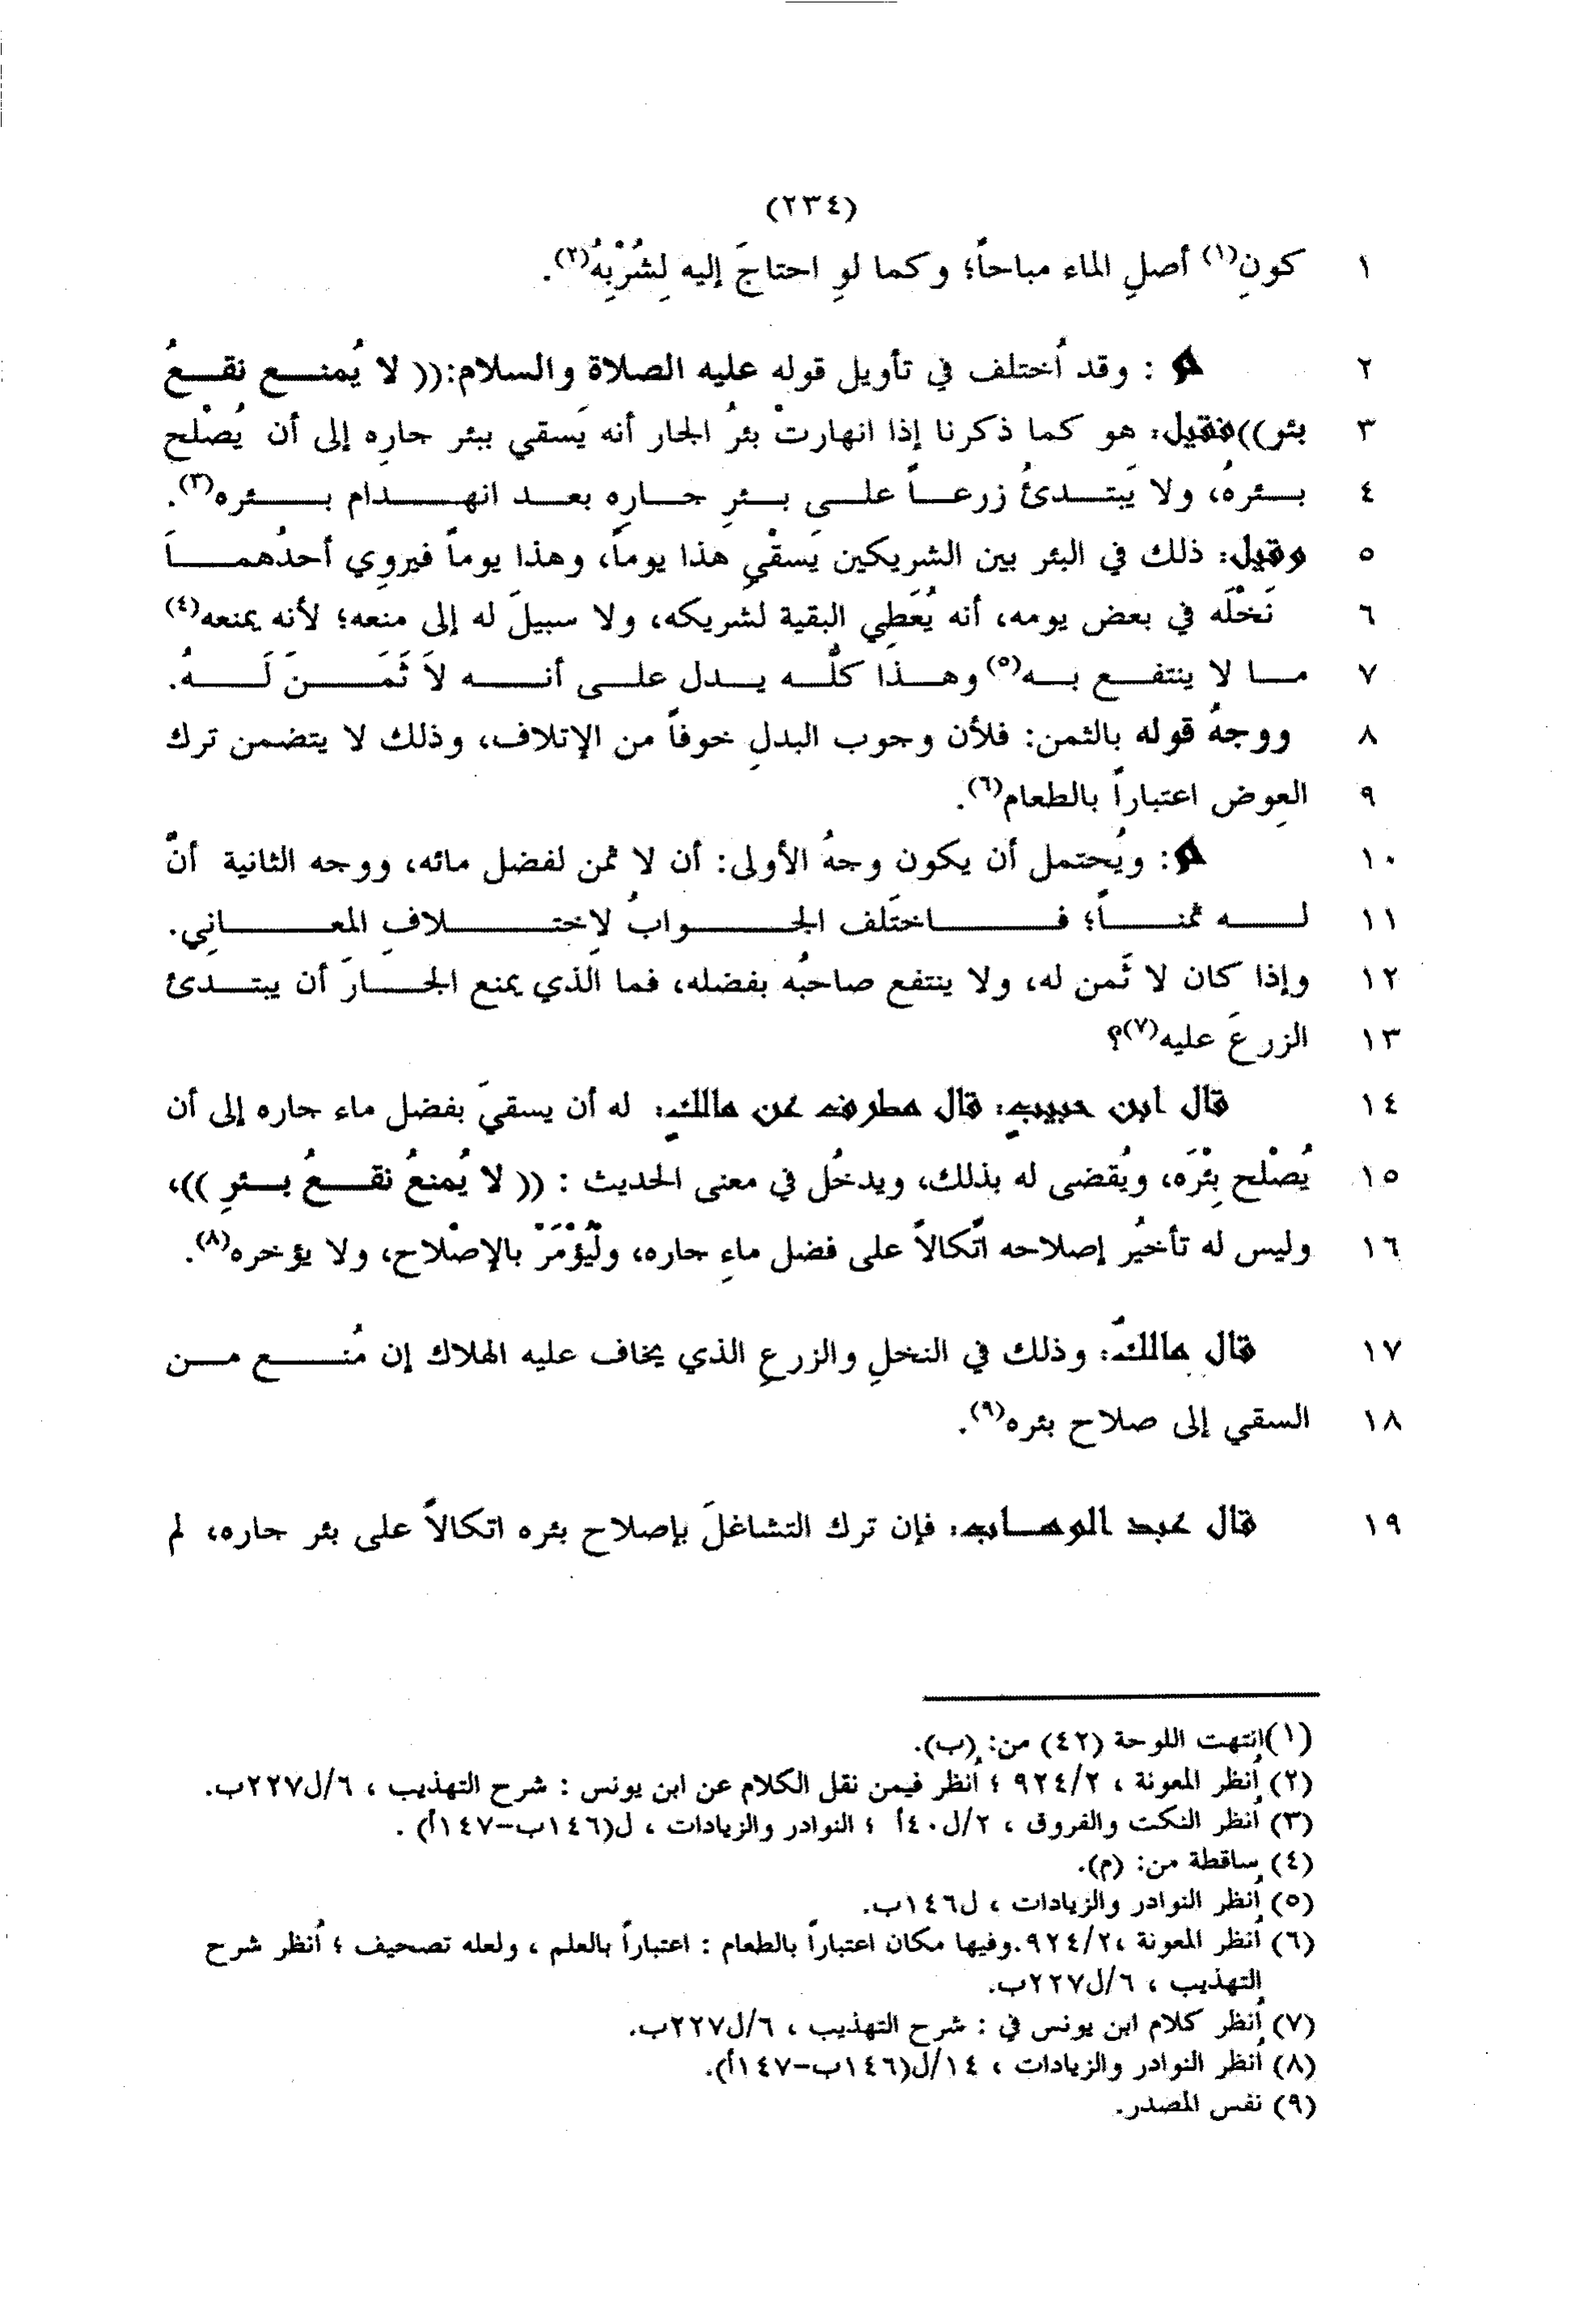 (٢٣٤)
١ كونِ(١) أصلِ الماء مباحاً؛ وكما لوِ احتاجَ إليه لِشُرْبِهُ(٢).
٢ م : وقد اُختلف في تأويل قوله عليه الصلاة والسلام:(( لا يُمنع نقعُ
٣ بئر))فقيل: هو كما ذكرنا إذا انهارتْ بئرُ الجار أنه يَسقي ببئر جارِه إلى أن يُصْلح
٤ بئرهُ، ولا يَبتدئُ زرعاً على بئرِ جارِه بعد انهدام بئره(٣).
٥ وقيل: ذلك في البئر بين الشريكين يَسقْيِ هذا يوماً، وهذا يوماً فيروِي أحدُهما
٦ نَخْلَه في بعض يومه، أنه يُعَطِي البقية لشريكه، ولا سبيلَ له إلى منعه؛ لأنه يمنعه(٤)
٧ ما لا ينتفع به(٥) وهذا كلُّه يدل على أنه لاَ ثَمَنَ لَهُ.
٨ ووجهُ قوله بالثمن: فلأن وجوب البدلِ خوفاً من الإتلاف، وذلك لا يتضمن ترك
٩ العِوض اعتباراً بالطعام(٦).
١٠ م: ويُحتمل أن يكون وجهُ الأولى: أن لا ثمن لفضل مائه، ووجه الثانية أنّ
١١ له ثمناً؛ فاختَلف الجوابُ لاِختلافِ المعانِي.
١٢ وإذا كان لا ثَّمن له، ولا ينتفع صاحبُه بفضله، فما الَذي يمنع الجارَ أن يبتدئ
١٣ الزرعَ عليه(٧)؟
١٤ قال ابن حبيبٍ: قال مطرف عن مالكٍ: له أن يسقيَ بفضل ماء جاره إلى أن
١٥ يُصْلح بِئْرَه، ويُقضى له بذلك، ويدخُل في معنى الحديث : (( لا يُمنعُ نقعُ بئرِ ))،
١٦ وليس له تأخيُر إصلاحه اتّكالاً على فضل ماءِ جاره، ولْيُؤْمَرْ بالإصْلاح، ولا يؤخره(٨).
١٧ قال مالكٌ: وذلك في النخلِ والزرعِ الذي يخاف عليه الهلاك إن مُنع من
١٨ السقي إلى صلاح بئره(٩).
١٩ قال عبد الوهاب: فإن ترك التشاغلَ بإصلاح بئره اتكالاً على بئر جاره، لم
(١)اِنتهت اللوحة (٤٢) من: (ب).
(٢) اُنظر المعونة ، ٩٢٤/٢ ؛ اُنظر فيمن نقل الكلام عن ابن يونس : شرح التهذيب ، ٦/ل٢٢٧ب.
(٣) اُنظر النكت والفروق ، ٢/ل٤٠أ ؛ النوادر والزيادات ، ل(١٤٦ب-١٤٧أ) .
(٤) ساقطة من: (م).
(٥) اُنظر النوادر والزيادات ، ل١٤٦ب.
(٦) اُنظر المعونة ،٩٢٤/٢.وفيها مكان اعتباراً بالطعام : اعتباراً بالعلم ، ولعله تصحيف ؛ اُنظر شرح
التهذيب ، ٦/ل٢٢٧ب.
(٧) اُنظر كلام ابن يونس في : شرح التهذيب ، ٦/ل٢٢٧ب.
(٨) اُنظر النوادر والزيادات ، ١٤/ل(١٤٦ب-١٤٧أ).
(٩) نفس المصدر.